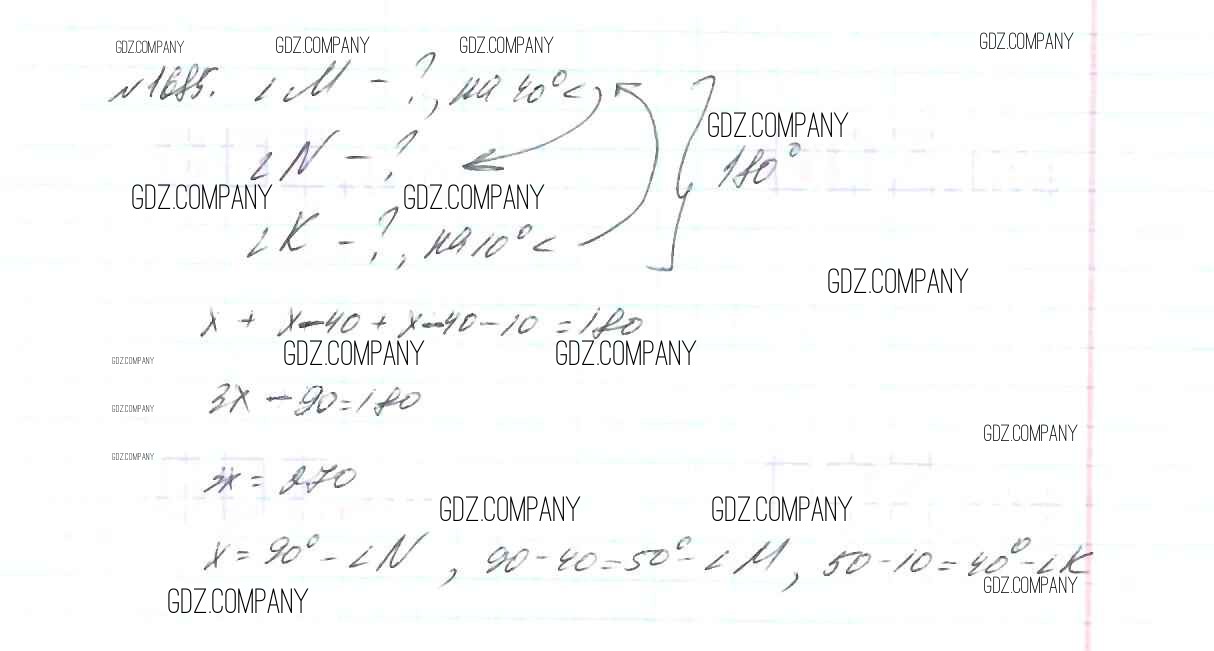 GDZ.COMPANY GDZ.COMPANY GDZ.COMPANY GDZ.COMPANY
№1685. ∠M - ?, на 40° <
GDZ.COMPANY
∠N - ? 180°
GDZ.COMPANY GDZ.COMPANY
∠K - ?, на 10° <
GDZ.COMPANY
x + x-40 + x-40-10 = 180
GDZ.COMPANY GDZ.COMPANY
GDZ.COMPANY
3x - 90 = 180
GDZ.COMPANY
GDZ.COMPANY
GDZ.COMPANY
3x = 270
GDZ.COMPANY GDZ.COMPANY
x = 90° - ∠N, 90 - 40 = 50° - ∠M, 50 - 10 = 40° - ∠K
GDZ.COMPANY
GDZ.COMPANY